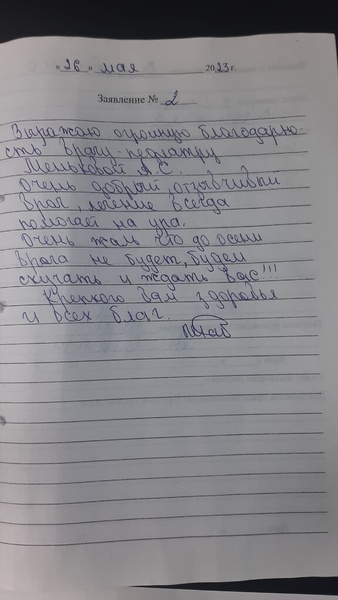 « 26 » мая 2023 г.
Заявление № 2
Выражаю огромную благодарно-
сть врачу-педиатру
Меньковой А.С.
Очень добрый, отзывчивый
врач, лечение всегда
помогает на ура.
Очень жаль что до осени
врача не будет, будем
скучать и ждать вас!!!
Крепкого Вам здоровья
и всех благ.